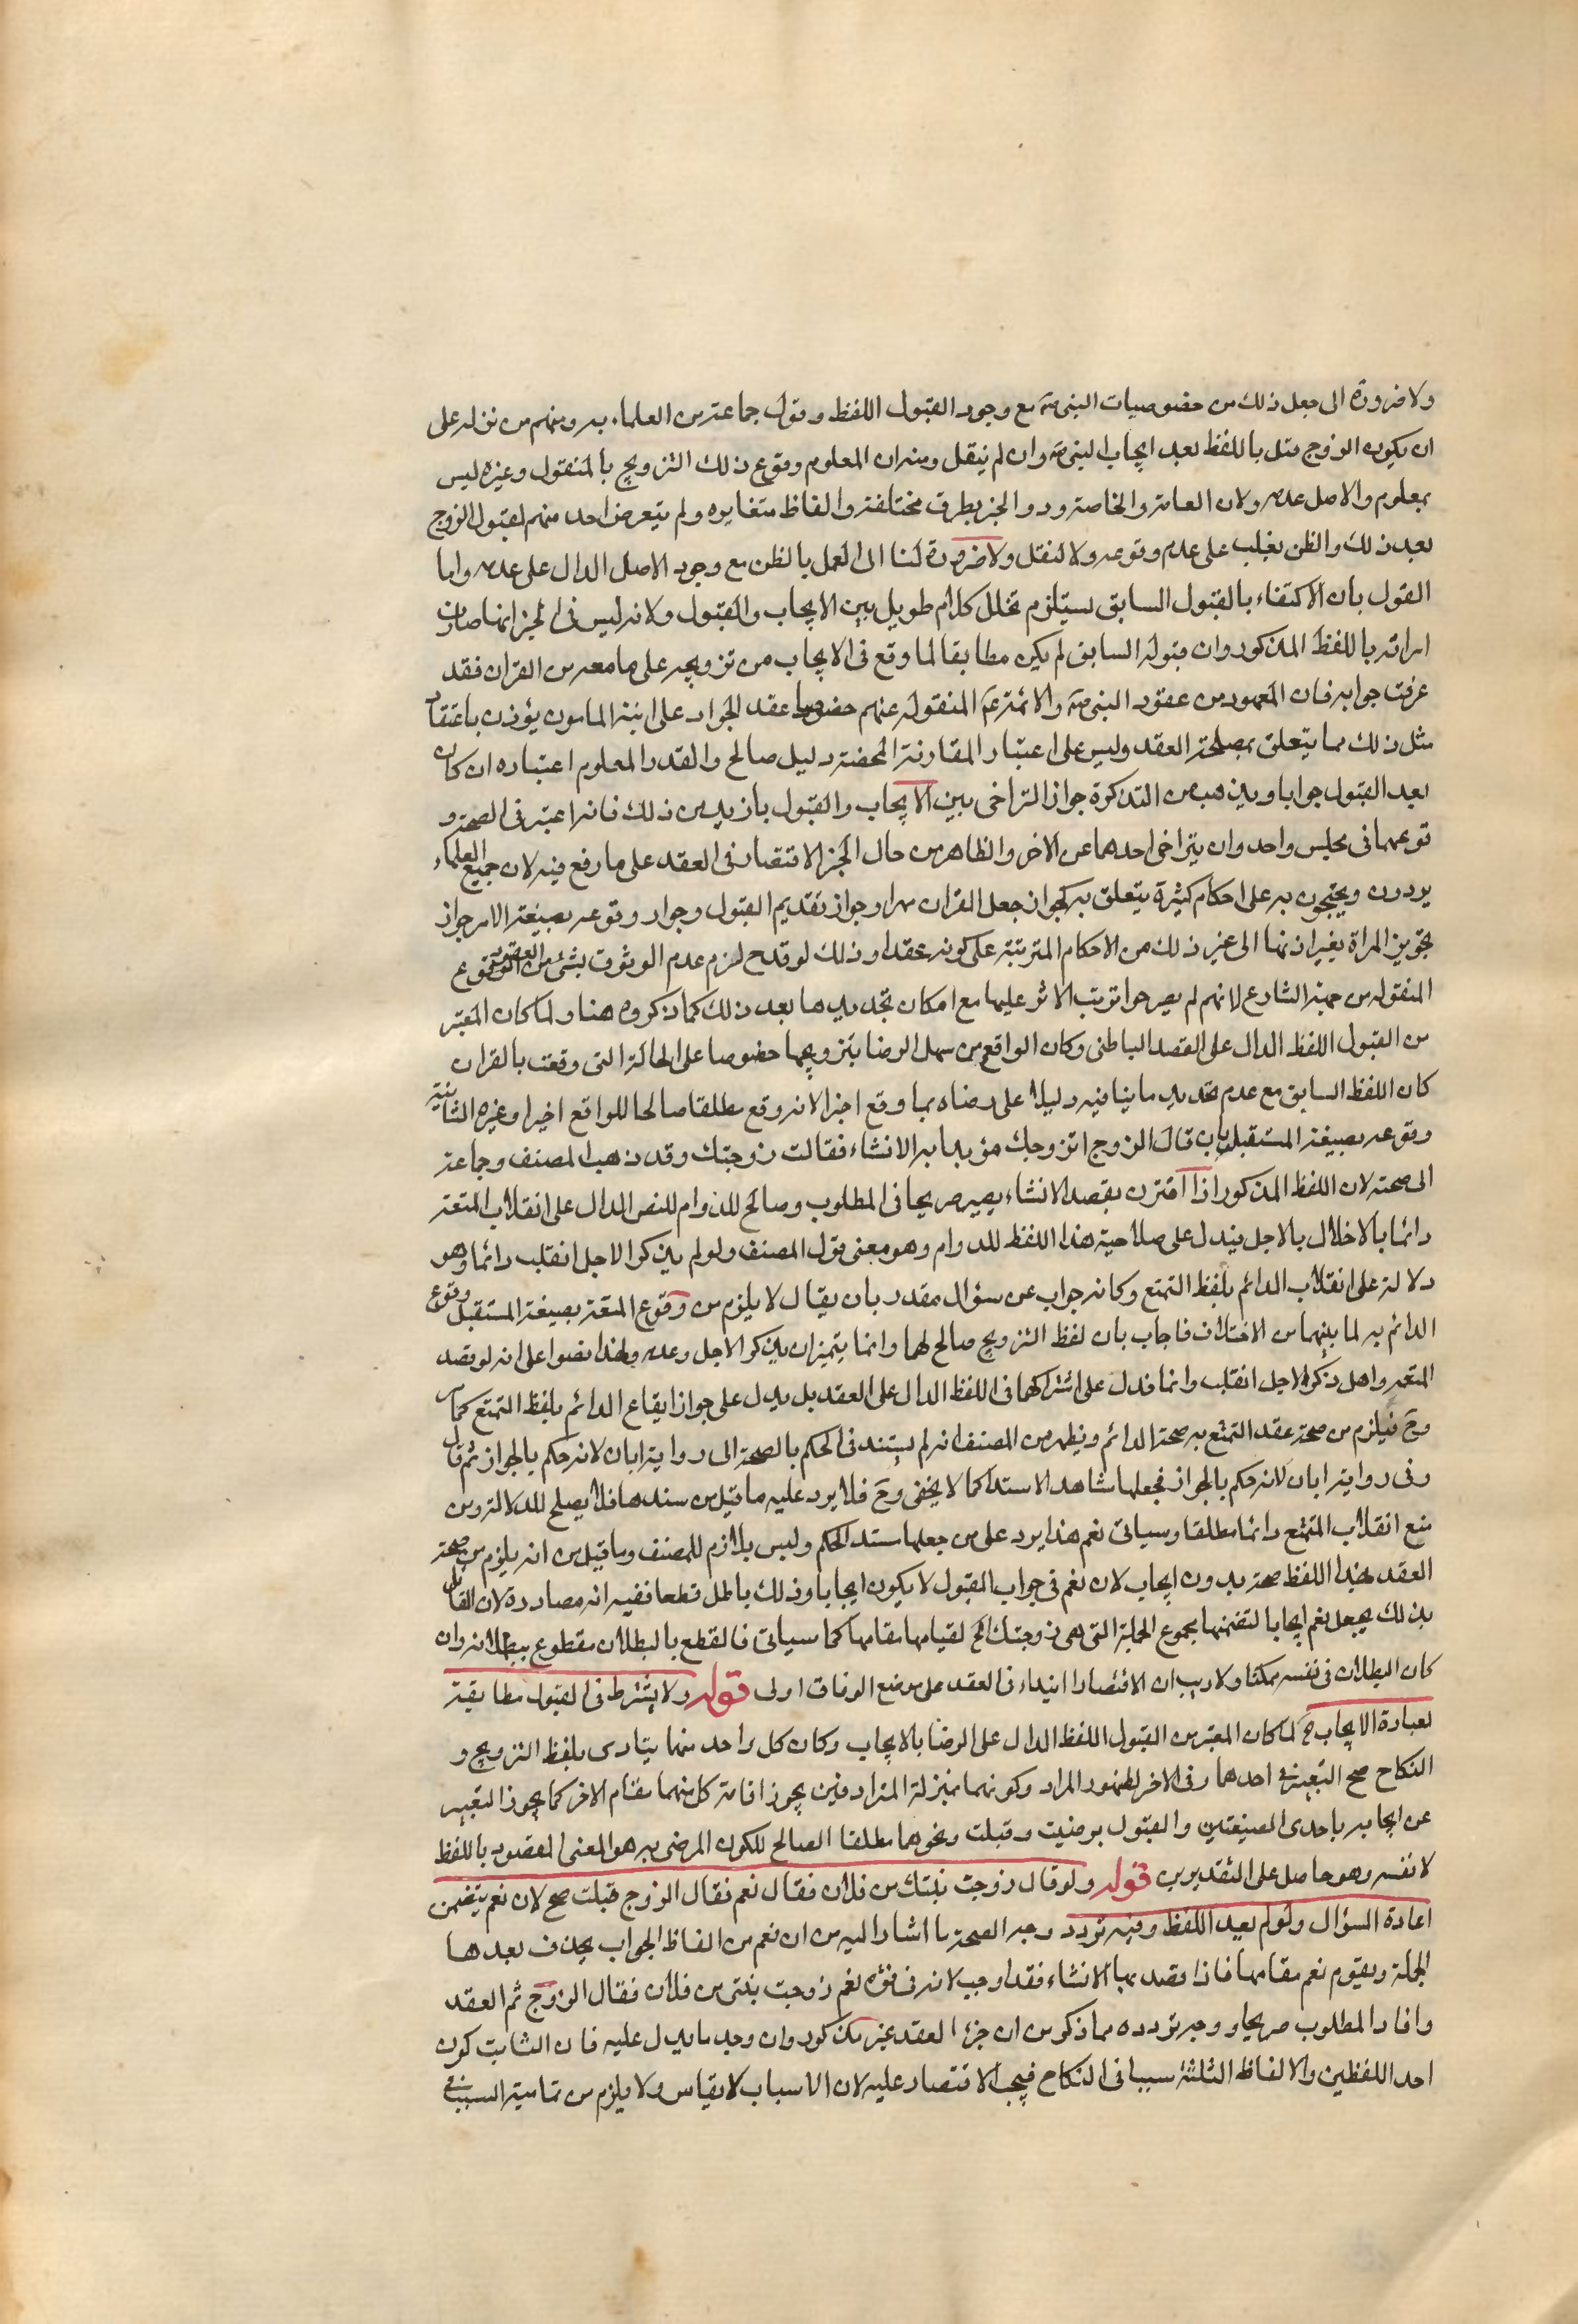 ولا ضرورة الى جعل ذلك من خصوصيات النبى صه مع وجود القبول اللفظى وقول جماعة من العلماء به ومنهم من نزله على
ان يكون الزوج قبل باللفظ بعد ايجاب النبى صه وان لم ينقل ومنه ان المعلوم وقوع ذلك التزويج بالمنقول وغيره ليس
بمعلوم والاصل عدمه ولان العامة والخاصة رووا الخبر بطرق مختلفة والفاظ متغايره ولم يتعرض احد منهم لقبول الزوج
بعد ذلك والظن يغلب على عدم وقوعه ولا لنقل ولا ضرورة لنا الى العمل بالظن مع وجود الاصل الدال على عدمه واما
القول بان الاكتفاء بالقبول السابق يستلزم تخلل كلام طويل بين الايجاب والقبول ولانه ليس فى الخبر انها صارت
امراته باللفظ المذكور وان قبوله السابق لم يكن مطابقا لما وقع فى الايجاب من تزويجه على ما معه من القران فقد
عرفت جوابه فان المعهود من عقود النبى صه والائمة ع المنقولة عنهم خصوصا عقد الجواد على ابنة المامون يؤذن باغتفار
مثل ذلك مما يتعلق بمصلحة العقد وليس على اعتبار المقارنة المحضة دليل صالح والقدر المعلوم اعتباره ان كان
بعد القبول جوابا ومذهب من التذكرة جواز التراخى بين الايجاب والقبول بازيد من ذلك فانه اعتبر فى الصحة و
قوعهما فى مجلس واحد وان يتراخى احدهما عن الاخر والظاهر من حال الخبر الاقتصار فى العقد على ما رفع فيه لان جميع العلماء
يردون ويحتجون به على احكام كثيرة يتعلق به كجواز جعل القران مهرا وجواز تقديم القبول وجواز وقوعه بصيغة الامر جواز
تجويز المراة بغير اذنها الى غير ذلك من الاحكام المترتبة على كونه عقدا وذلك لو قدح لزم عدم الوثوق بشئ من العقود
المنقولة من جهة الشارع لانهم لم يصرحوا بترتب الاثر عليها مع امكان تجديدها بعد ذلك كما ذكروه هنا ولما كان المعتبر
من القبول اللفظ الدال على القصد الباطنى وكان الواقع من سهل الرضا بتزويجها خصوصا على الحالة التى وقعت بالقران
كان اللفظ السابق مع عدم تجديد ما ينافيه دليلا على رضاه بما وقع اخيرا لانه وقع مطلقا صالحا للواقع اخيرا وغيره الثانية
وقوعه بصيغة المستقبل بان قال الزوج اتزوجك مؤيدا به الانشاء فقالت زوجتك وقد ذهب المصنف وجماعة
الى صحته لان اللفظ المذكور اذا اقترن بقصد الانشاء يصير صريحا فى المطلوب وصالح للدوام للنص الدال على انقلاب المتعة
دائما بالاخلال بالاجل فيدل على صلاحية هذا اللفظ للدوام وهو معنى قول المصنف ولو لم يذكر الاجل انقلب دائما وهو
دلالة على انقلاب الدائم بلفظ التمتع وكانه جواب عن سؤال مقدر بان يقال لا يلزم من وقوع المتعة بصيغة المستقبل وقوع
الدائم به لما بينهما من الاختلاف فاجاب بان لفظ التزويج صالح لهما وانما يتميزان بذكر الاجل وعدمه ولهذا نصوا على انه لو قصد
المتعة واهمل ذكر الاجل انقلب دائما فدل على اشتراكهما فى اللفظ الدال على العقد بل يدل على جواز ايقاع الدائم بلفظ التمتع كما
وح فيلزم من صحة عقد التمتع به صحة الدائم ويظهر من المصنف انه لم يستند فى الحكم بالصحة الى رواية ابان لانه حكم بالجواز ثم قال
وفى رواية ابان لانه حكم بالجواز فجعلها شاهدا لا سندا كما لا يخفى وح فلا يرد عليه ما قيل من سندها فلا يصلح للدلالة ومن
منع انقلاب المتمتع دائما مطلقا وسياتى نعم هذا يرد على من جعلها مستند الحكم وليس بلازم للمصنف وما قيل من انه يلزم من صحة
العقد بهذا اللفظ صحته بدون ايجاب لان نعم فى جواب القبول لا يكون ايجابا وذلك باطل قطعا ففيه انه مصادرة لان القايل
بذلك يجعل نعم ايجابا لتضمنها مجموع الجملة التى هى زوجتك الخ لقيامها مقامها كما سياتى فالقطع بالبطلان مقطوع ببطلانه وان
كان البطلان فى نفسه ممكنا ولا ريب ان الاقتصار ابتداء فى العقد على موضع الوفاق اولى قوله ولا يشترط فى القبول مطابقته
لعبارة الايجاب الخ لما كان المعتبر من القبول اللفظ الدال على الرضا بالايجاب وكان كل واحد منهما يتادى بلفظ التزويج و
النكاح صح التعبير فى احدهما وفى الاخر لظهور المراد وكونهما بمنزلة المترادفين يجوز اقامة كل منهما مقام الاخر كما يجوز التعبير
عن ايجابه باحدى الصيغتين والقبول برضيت وقبلت ونحوهما مطلقا الصالح لكون المرضى به هو المعنى المقصود باللفظ
لا نفسه وهو حاصل على التقديرين قوله ولو قال زوجت بنتك من فلان فقال نعم فقال الزوج قبلت صح لان نعم يتضمن
اعادة السؤال ولو لم يعيد اللفظ وفيه تردد وجه الصحة ما اشار اليه من ان نعم من الفاظ الجواب يحذف بعدها
الجملة ويقوم نعم مقامها فاذا قصد بها الانشاء فقد اوجب لانه فى قوة نعم زوجت بنتى من فلان فقال الزوج ثم العقد
وافاد المطلوب صريحا و وجه تردده مما ذكر من ان جزء العقد غير مذكور وان وجد ما يدل عليه فان الثابت كون
احد اللفظين والالفاظ الثلثة سببا فى النكاح فيجب الاقتصار عليه لان الاسباب لا تقاس ولا يلزم من تمامية السبب فى